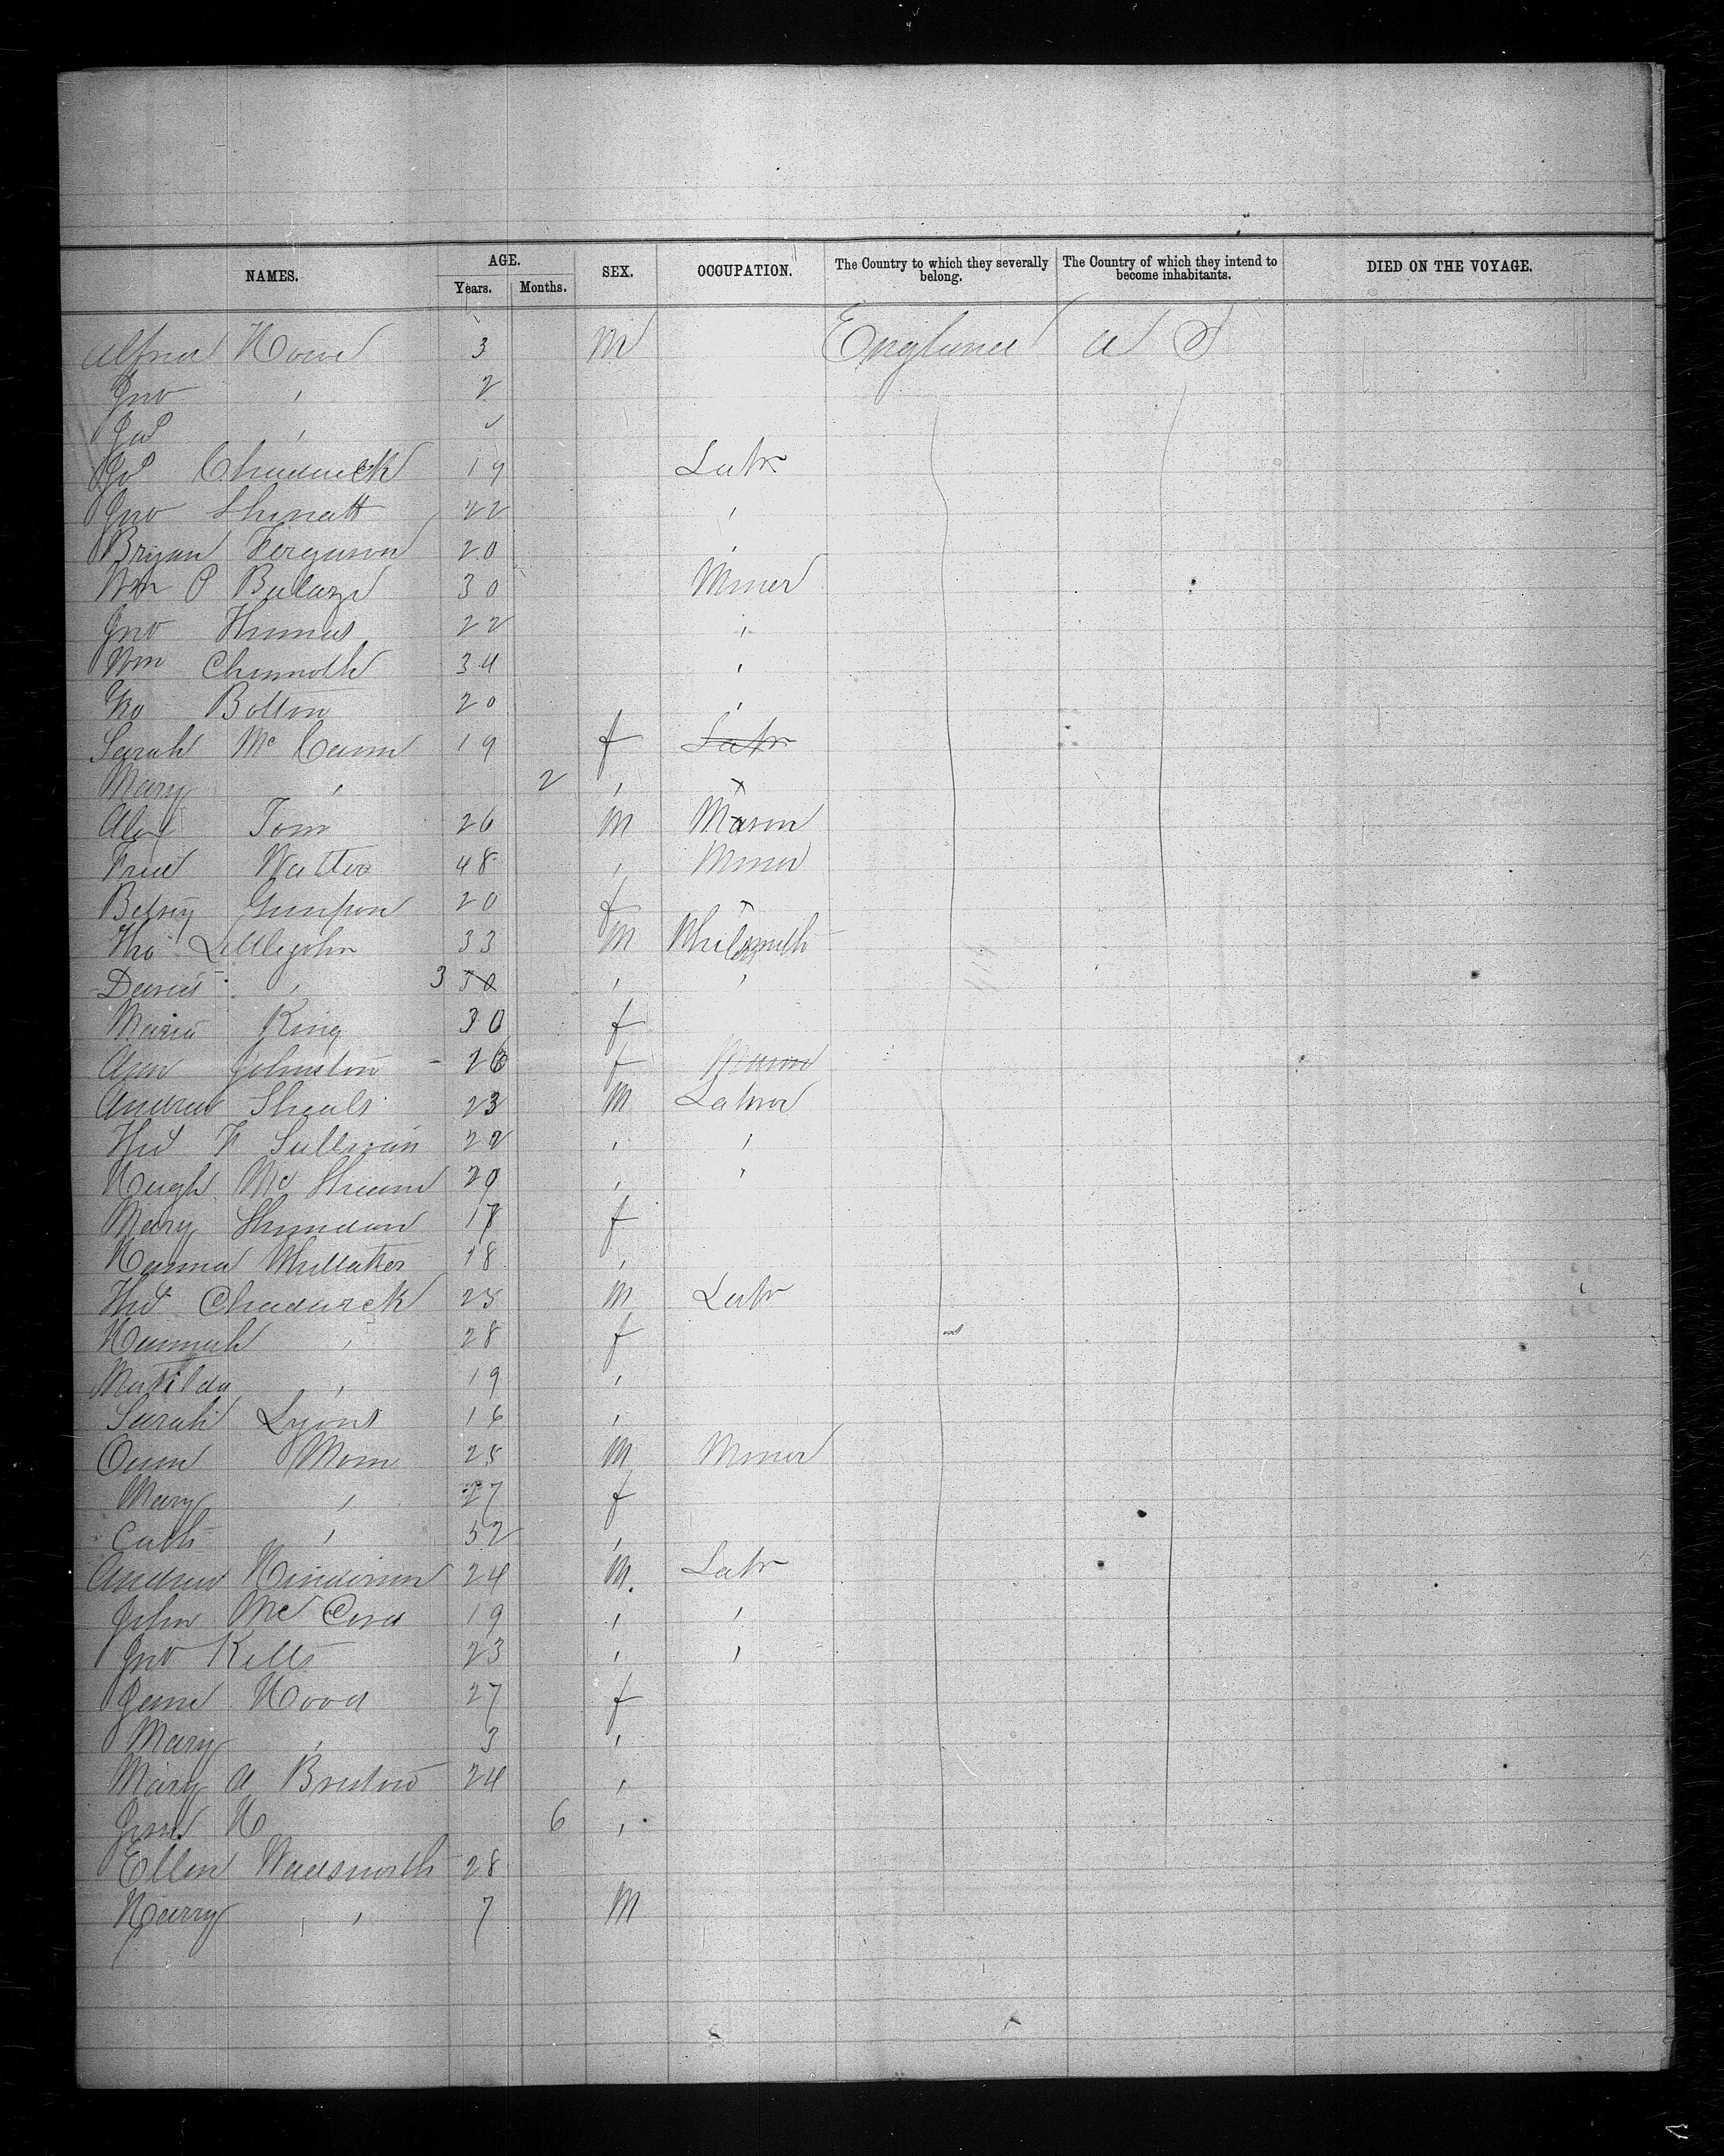 NAMES. AGE. Years. Months. SEX. OCCUPATION. The Country to which they severally belong. The Country of which they intend to become inhabitants. DIED ON THE VOYAGE.
Alfred 3 M England U S
Jno " 2
Jas "
Jos Chadwick 19 Labr
Jno 22 "
Bryan Ferguson 20 "
Wm P 30 Miner
Jno Thomas 22 "
Wm Chenoweth 34 "
Tho Bolton 20 "
Sarah McCann 19 f Labr
Mary " 2 "
Alex Tom 26 M Mason
Fred Watters 48 " Miner
Betsy 20 f
Tho Littlejohn 33 M Whitesmith
David " 3 30 " "
Maria King 30 f
Ann Johnston - 26 f
Andrew Sheals 23 M Labour
Tho F Sullivan 22 " "
Hugh Mc 29 " "
Mary 17 f
Hanna Whittaker 18 "
Thos Chadwick 25 M Labr
Hannah " 28 f
Matilda " 19 "
Sarah Lyons 16 "
Owen 25 M Miner
Mary " 27 f
Cath " 52 "
Andrew Henderson 24 M. Labr
John McCord 19 " "
Jno Kells 23 " "
Jane Wood 27 f
Mary " 3 "
Mary A Bristow 24 "
H 6 "
Ellen Wadsworth 28
Harry " 7 M